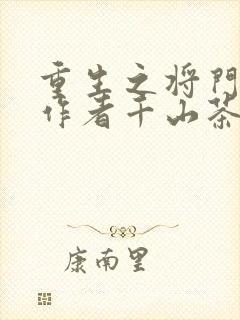 重生之将門
作者千山茶
康南里